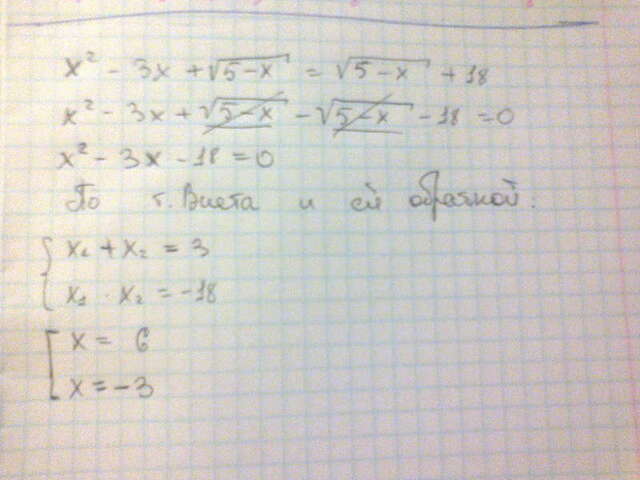 x² - 3x + √5-x = √5-x + 18
x² - 3x + √5-x - √5-x - 18 = 0
x² - 3x - 18 = 0
По т. Виета и ей обратной:
{ x₁ + x₂ = 3
{ x₁ · x₂ = -18
[ x = 6
[ x = -3